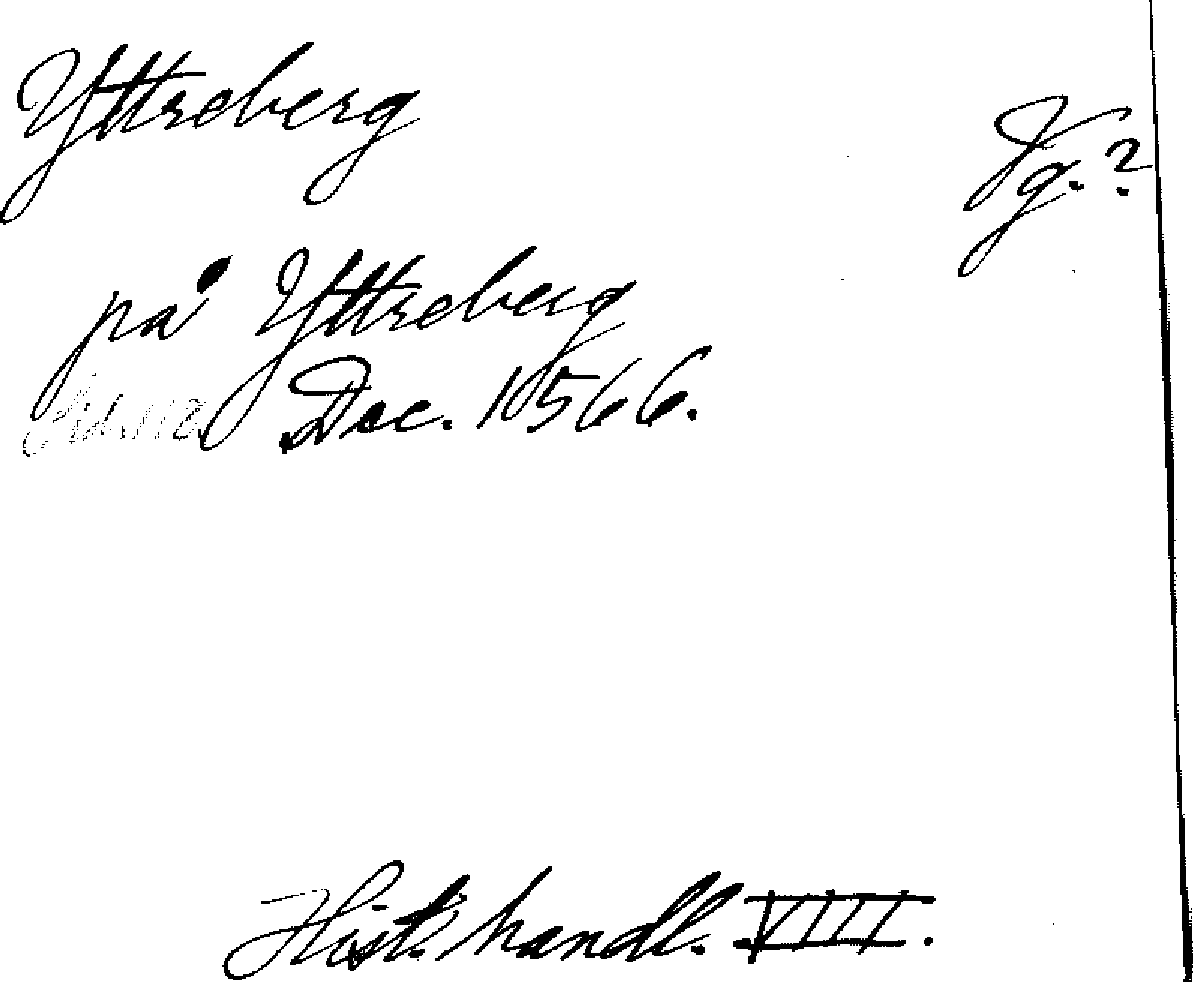 Yttreberg
Vg.?
på Yttreberg
Dec. 1566.
Hist. handl. VIII.